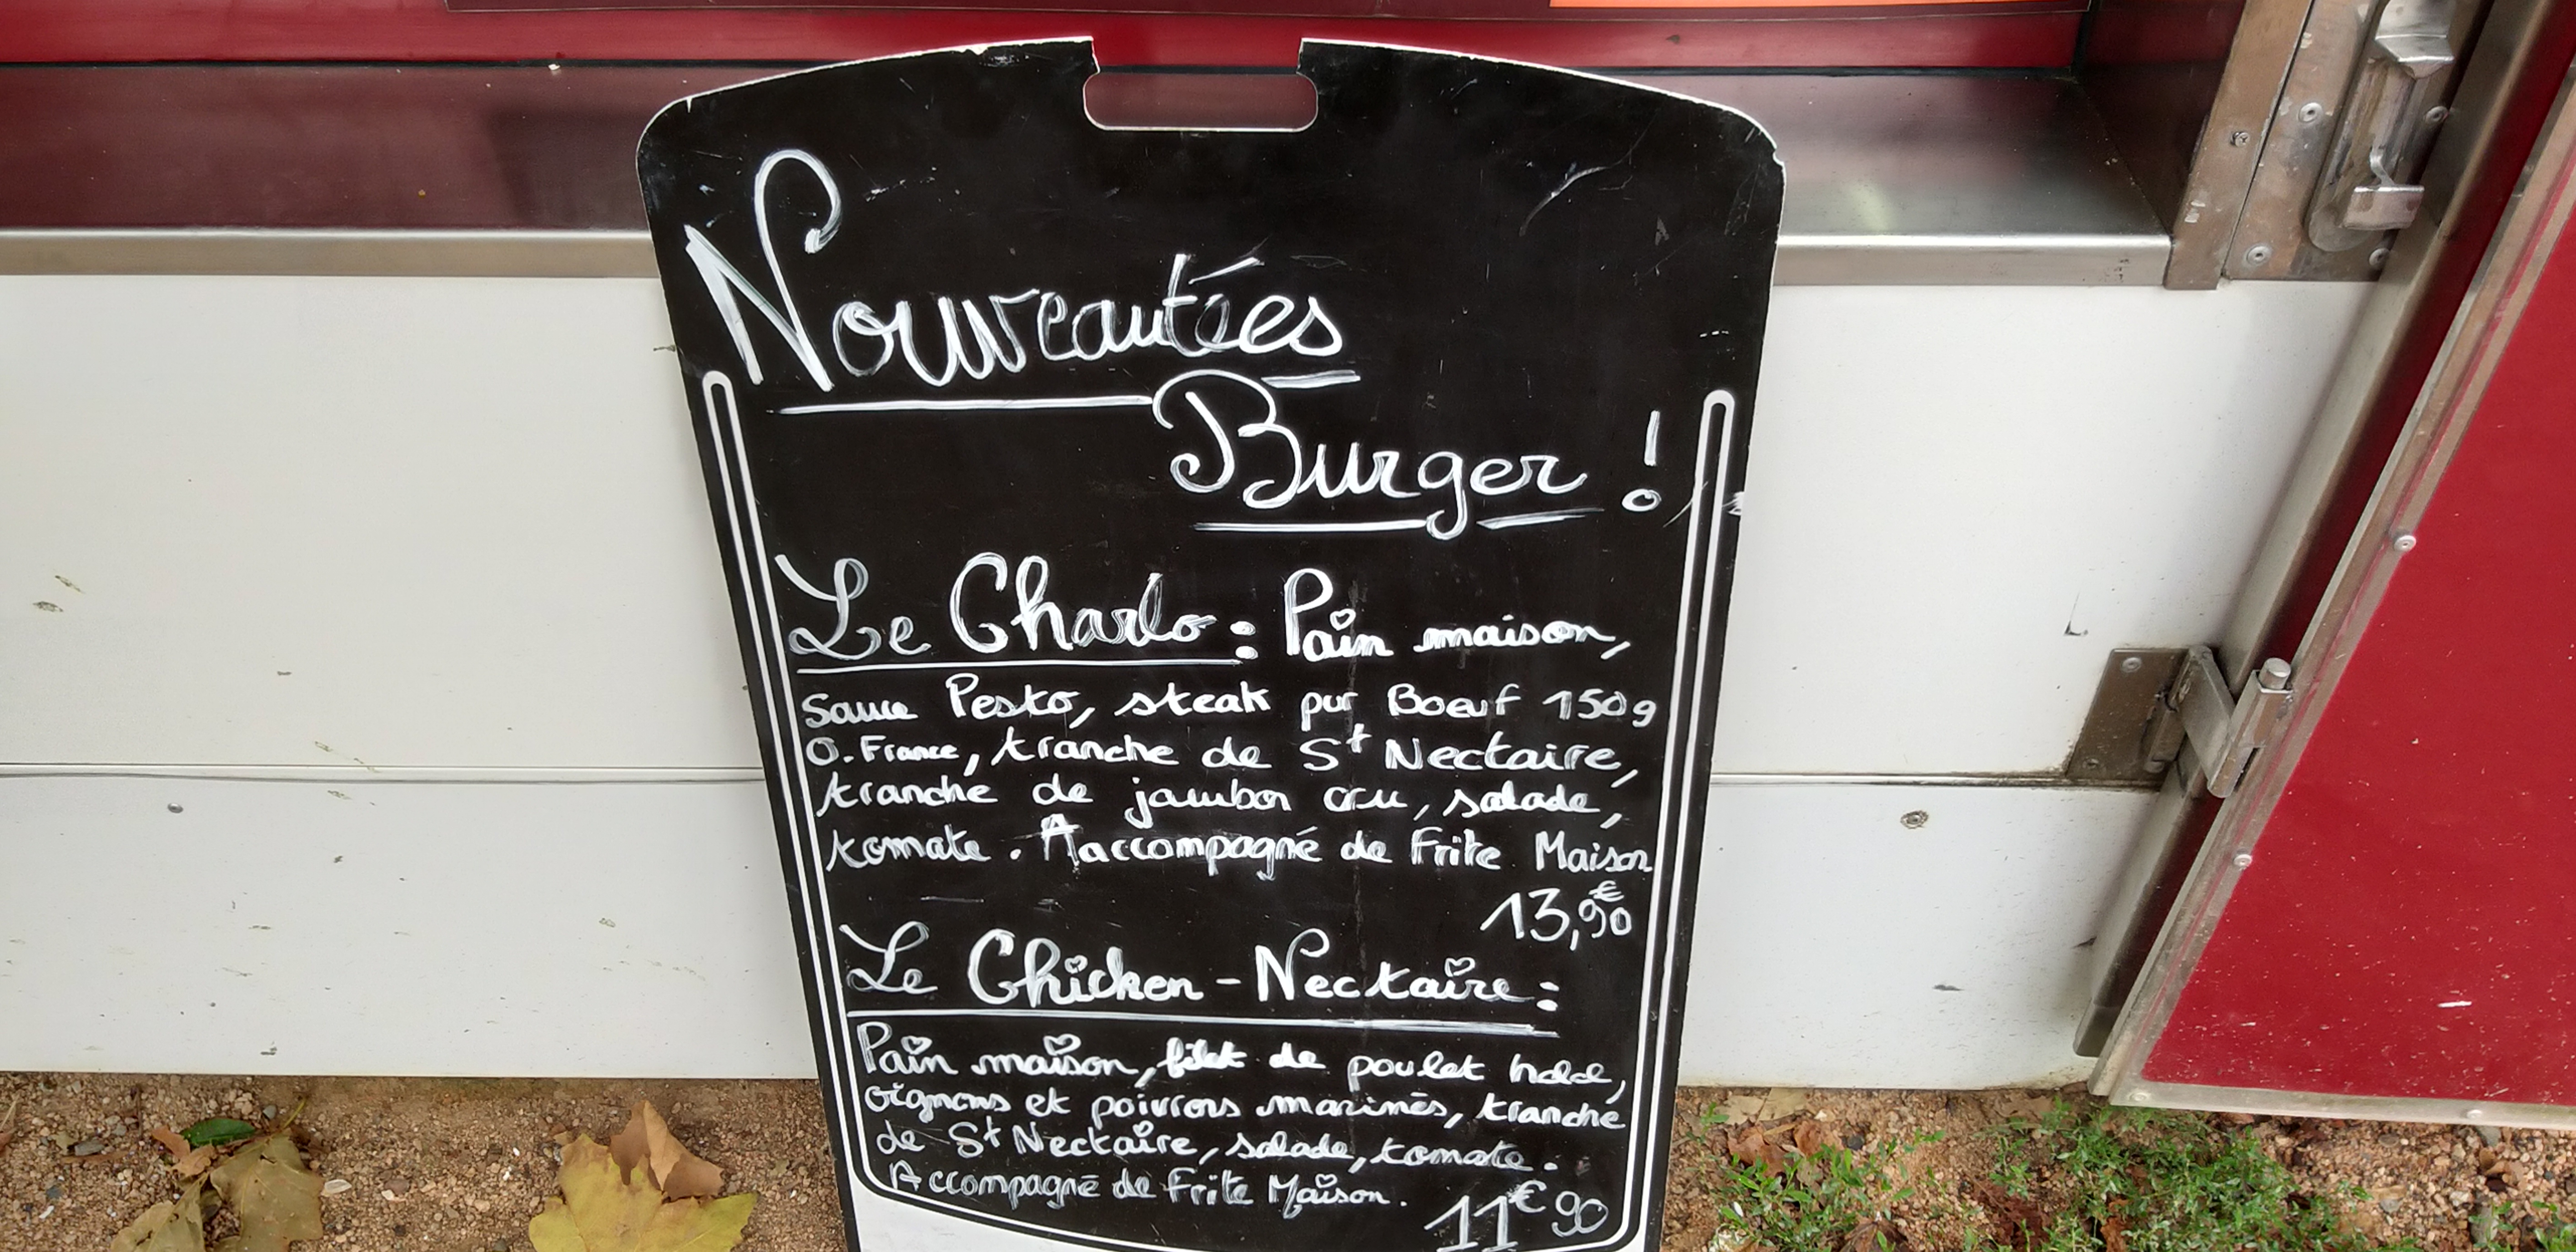 Nouveautées
Burger !
Le Charlo : Pain maison,
Sauce Pesto, steak pur Boeuf 150g
O. France, tranche de St Nectaire,
tranche de jambon cru, salade,
tomate. Aaccompagné de Frite Maison
13,90€
Le Chicken-Nectaire :
Pain maison, filet de poulet halal,
oignons et poivrons marinés, tranche
de St Nectaire, salade, tomate.
Accompagné de Frite Maison.
11€90